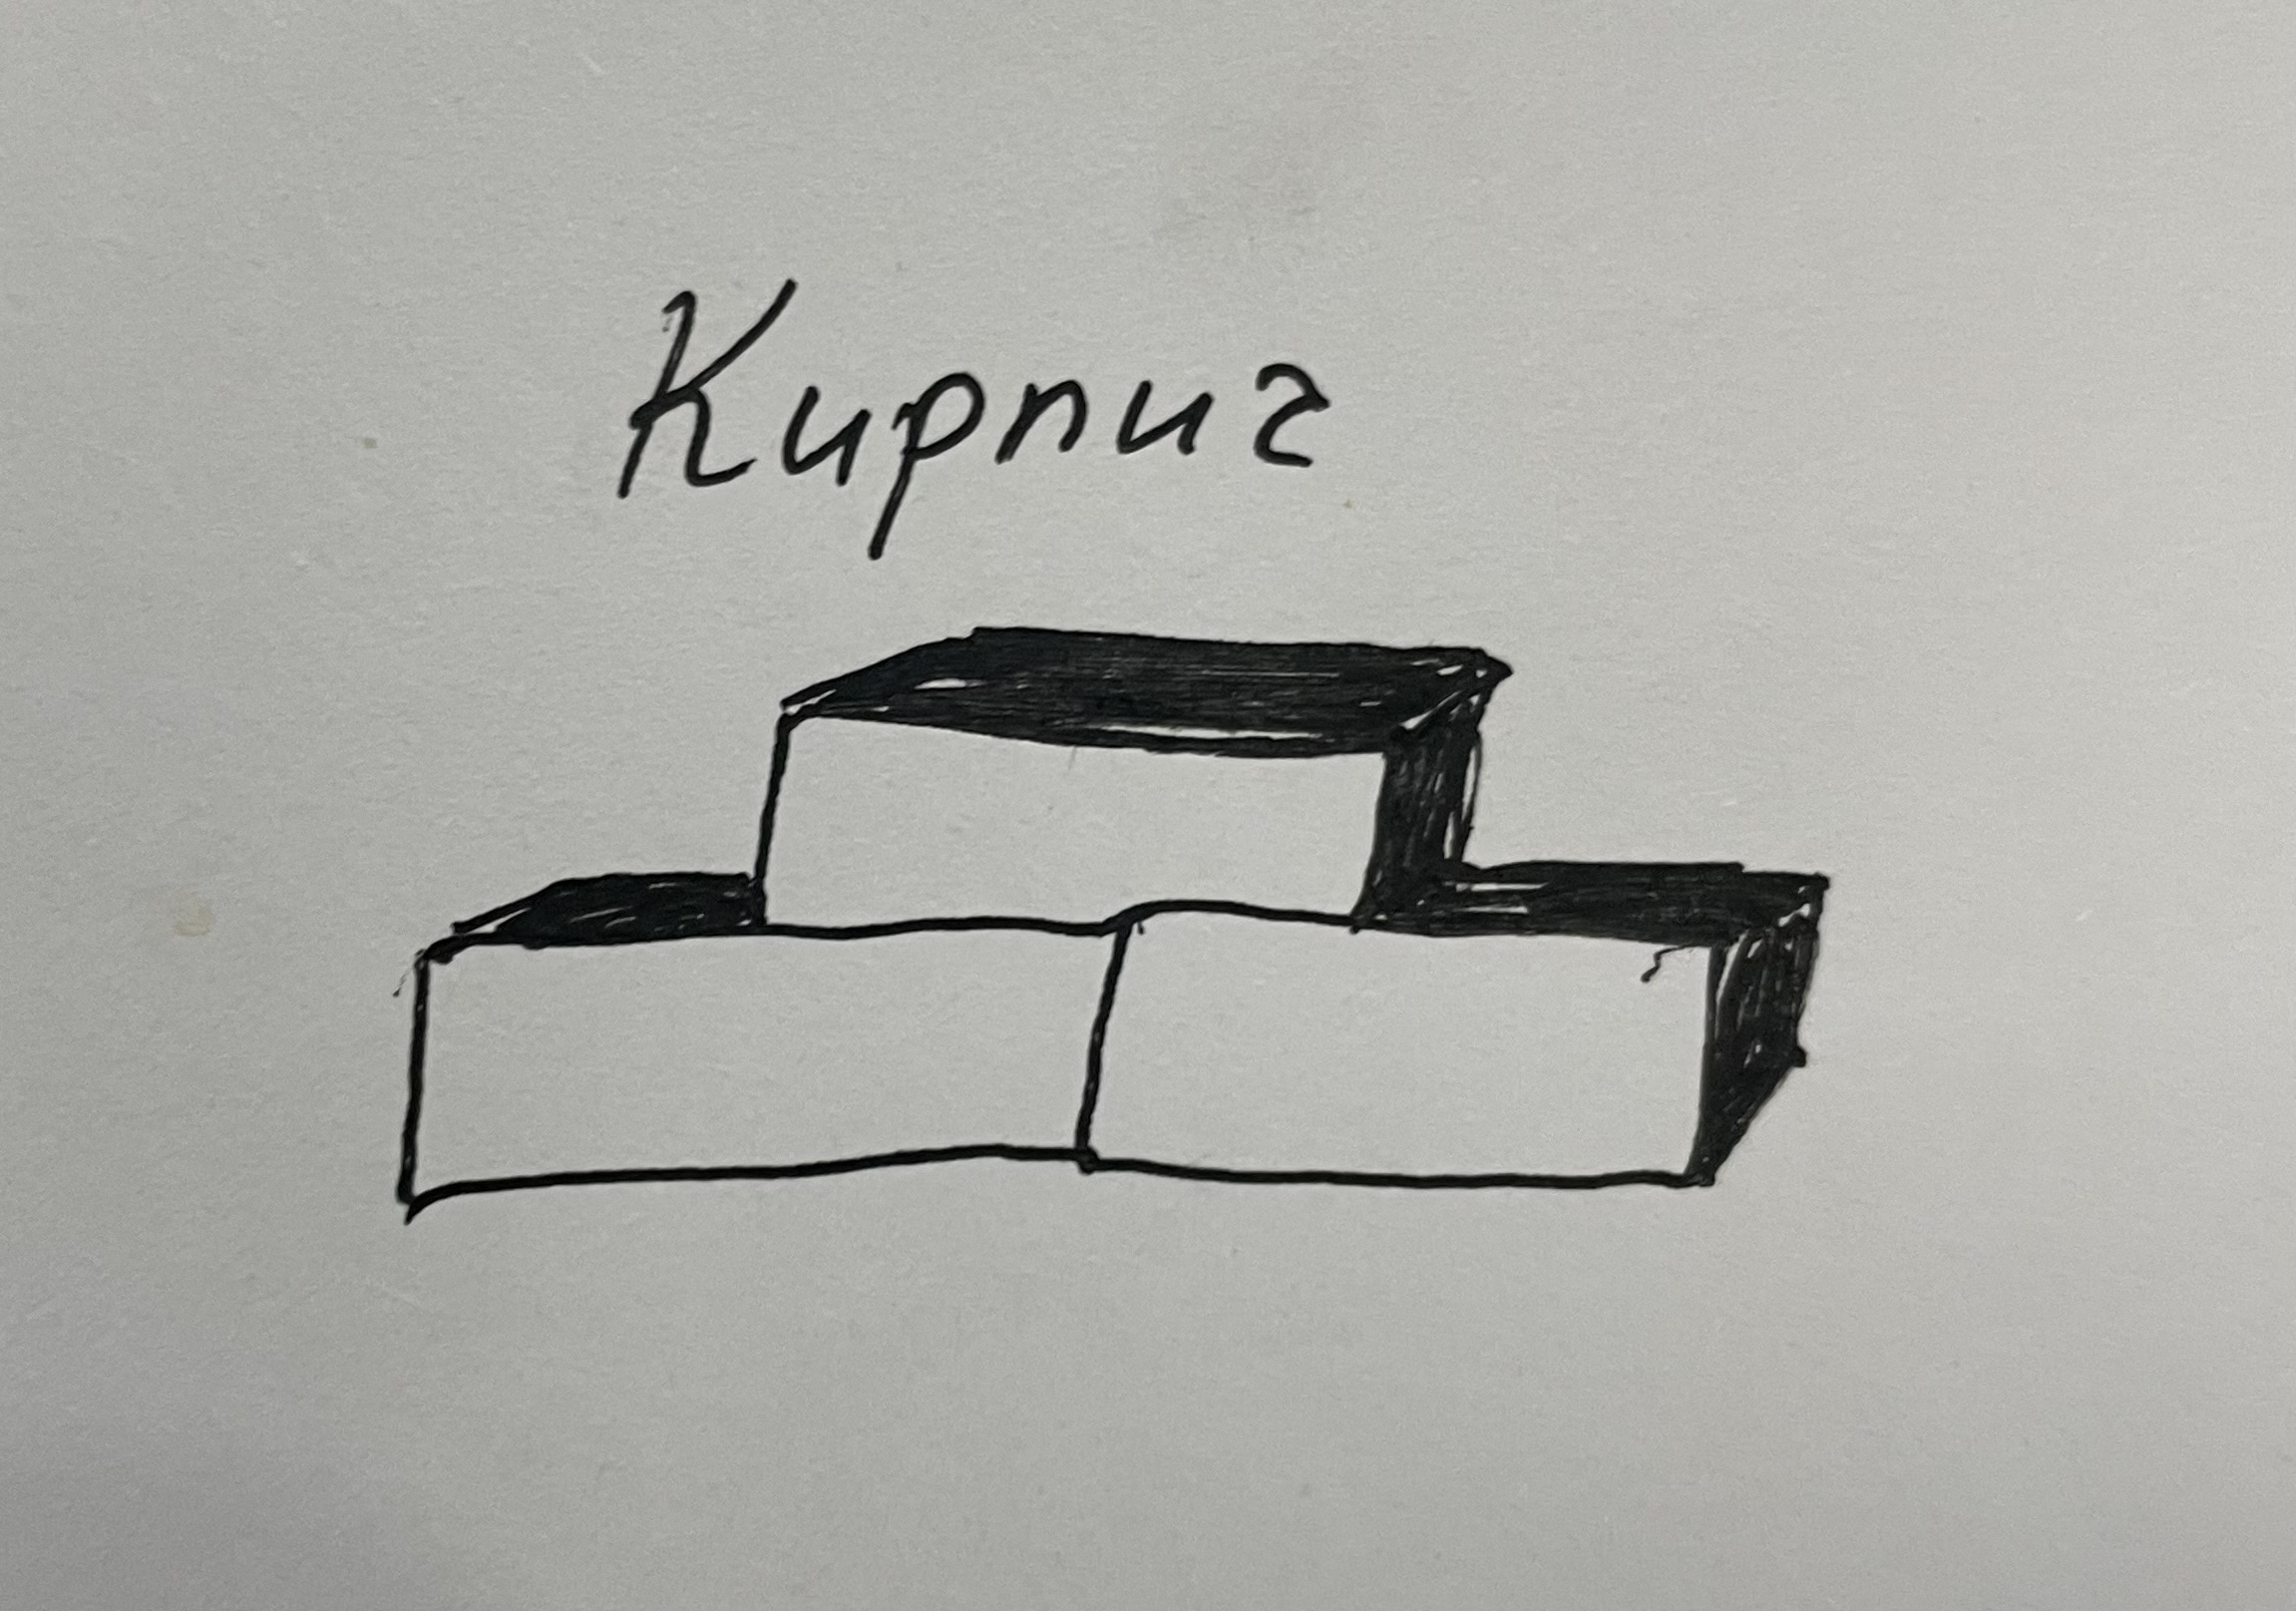 Кирпиг